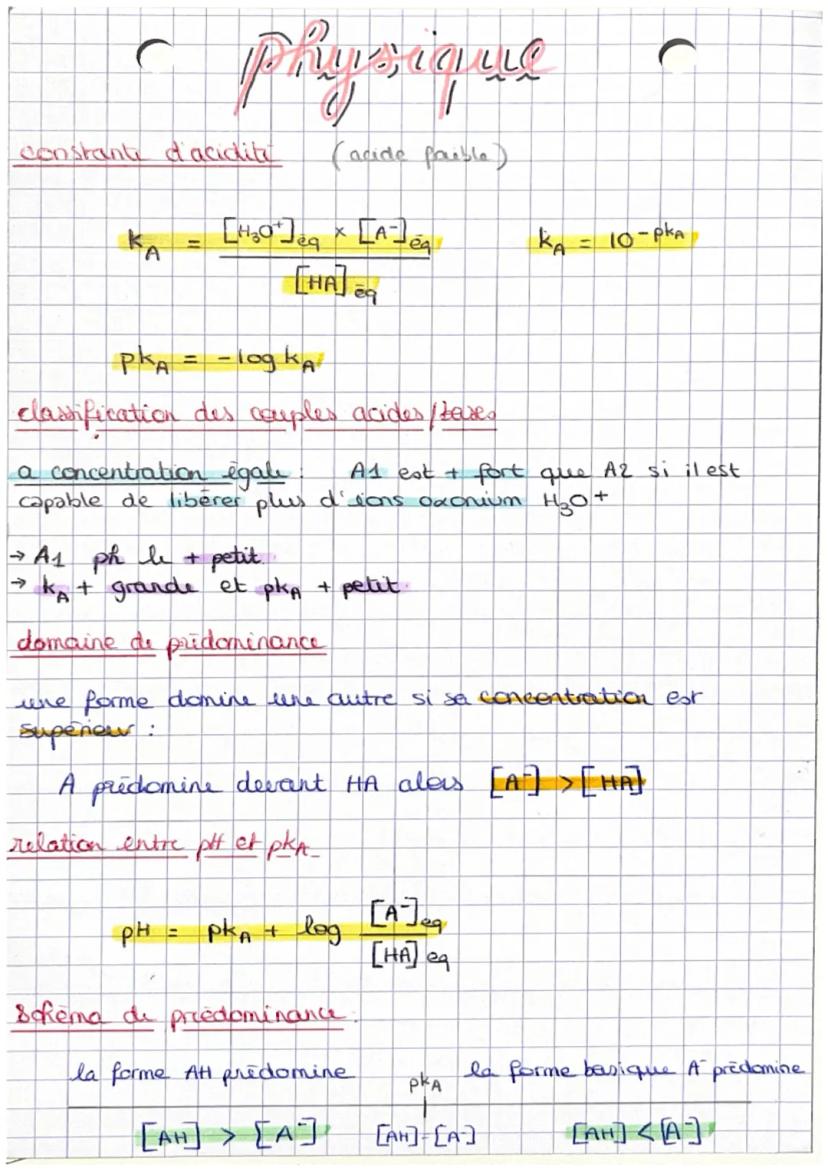 physique
constante d'acidité (acide faible)
kA = [H3O+]éq × [A-]éq / [HA]éq kA = 10-pkA
pkA = -log kA
classification des couples acides/bases
a concentration égale : A1 est + fort que A2 si il est
capable de libérer plus d'ions oxonium H3O+
→ A1 ph le + petit
→ kA + grande et pkA + petit
domaine de prédominance
une forme domine une autre si sa concentration est
supérieur :
A prédomine devant HA alors [A-] > [HA]
relation entre pH et pkA
pH = pkA + log [A-]eq / [HA] eq
Schéma de prédominance
la forme AH prédomine pkA la forme basique A- prédomine
[AH] > [A-] [AH]=[A-] [AH] < [A-]